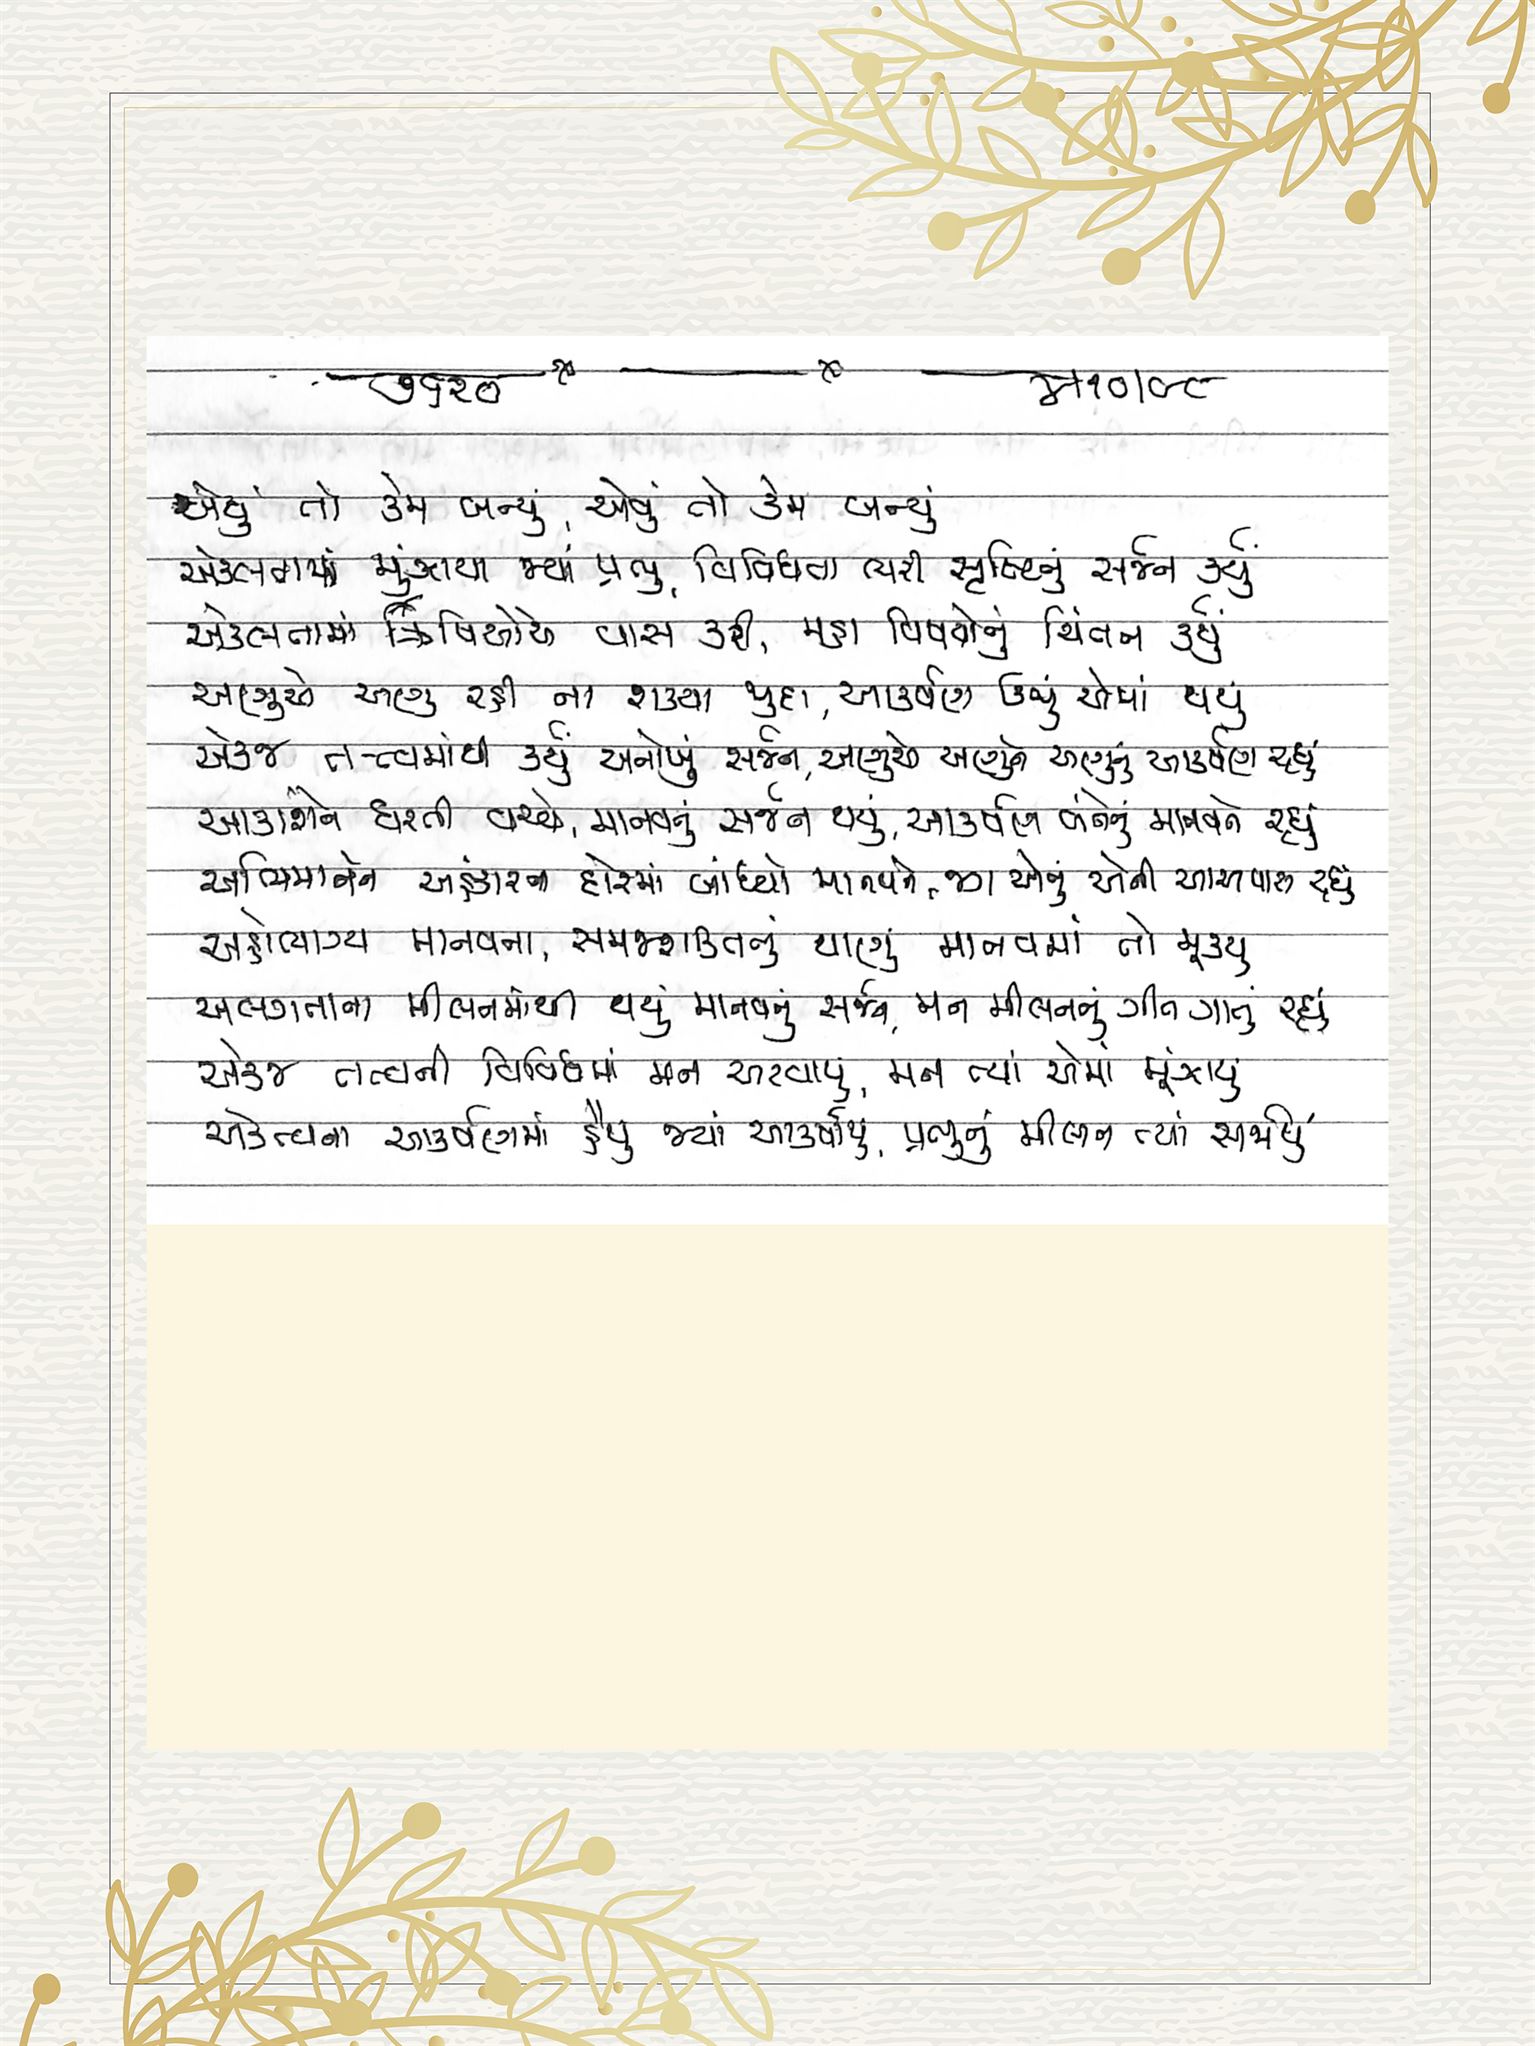 ૭૬૨૦
એવું તો કેમ બન્યું, એવું તો કેમ બન્યું
એકલતામાં મુંઝાયા જ્યાં પ્રભુ, વિવિધતા ભરી સૃષ્ટિનું સર્જન કર્યું
એકલતામાં ઋષિઓએ વાસ કરી, મહા વિષયોનું ચિંતન કર્યું
અણુએ અણુ રહી ના શક્યા જુદા, આકર્ષણ ઊભું એમાં થયું
એકજ તત્ત્વમાંથી કર્યું અનોખું સર્જન, અણુએ અણુને અણુનું આકર્ષણ રહ્યું
આકાશને ધરતી વચ્ચે, માનવનું સર્જન થયું, આકર્ષણ બંનેનું માનવને રહ્યું
અભિમાનને અહંકારના દોરમાં બાંધ્યો માનવને, જગ એનું એની આસપાસ રહ્યું
અહોભાગ્ય માનવના, સમજશક્તિનું થાણું માનવમાં તો મૂક્યુ
અલગતાના મીલનમાંથી થયું માનવનું સર્જન, મન મીલનનું ગીત ગાતું રહ્યું
એકજ તત્વની વિવિધમાં મન અટવાયુ, મન ત્યાં એમાં મૂંઝાયુ
એકત્વના આકર્ષણમાં હૈયુ જ્યાં આકર્ષાયુ, પ્રભુનું મીલન ત્યાં સર્જાયું